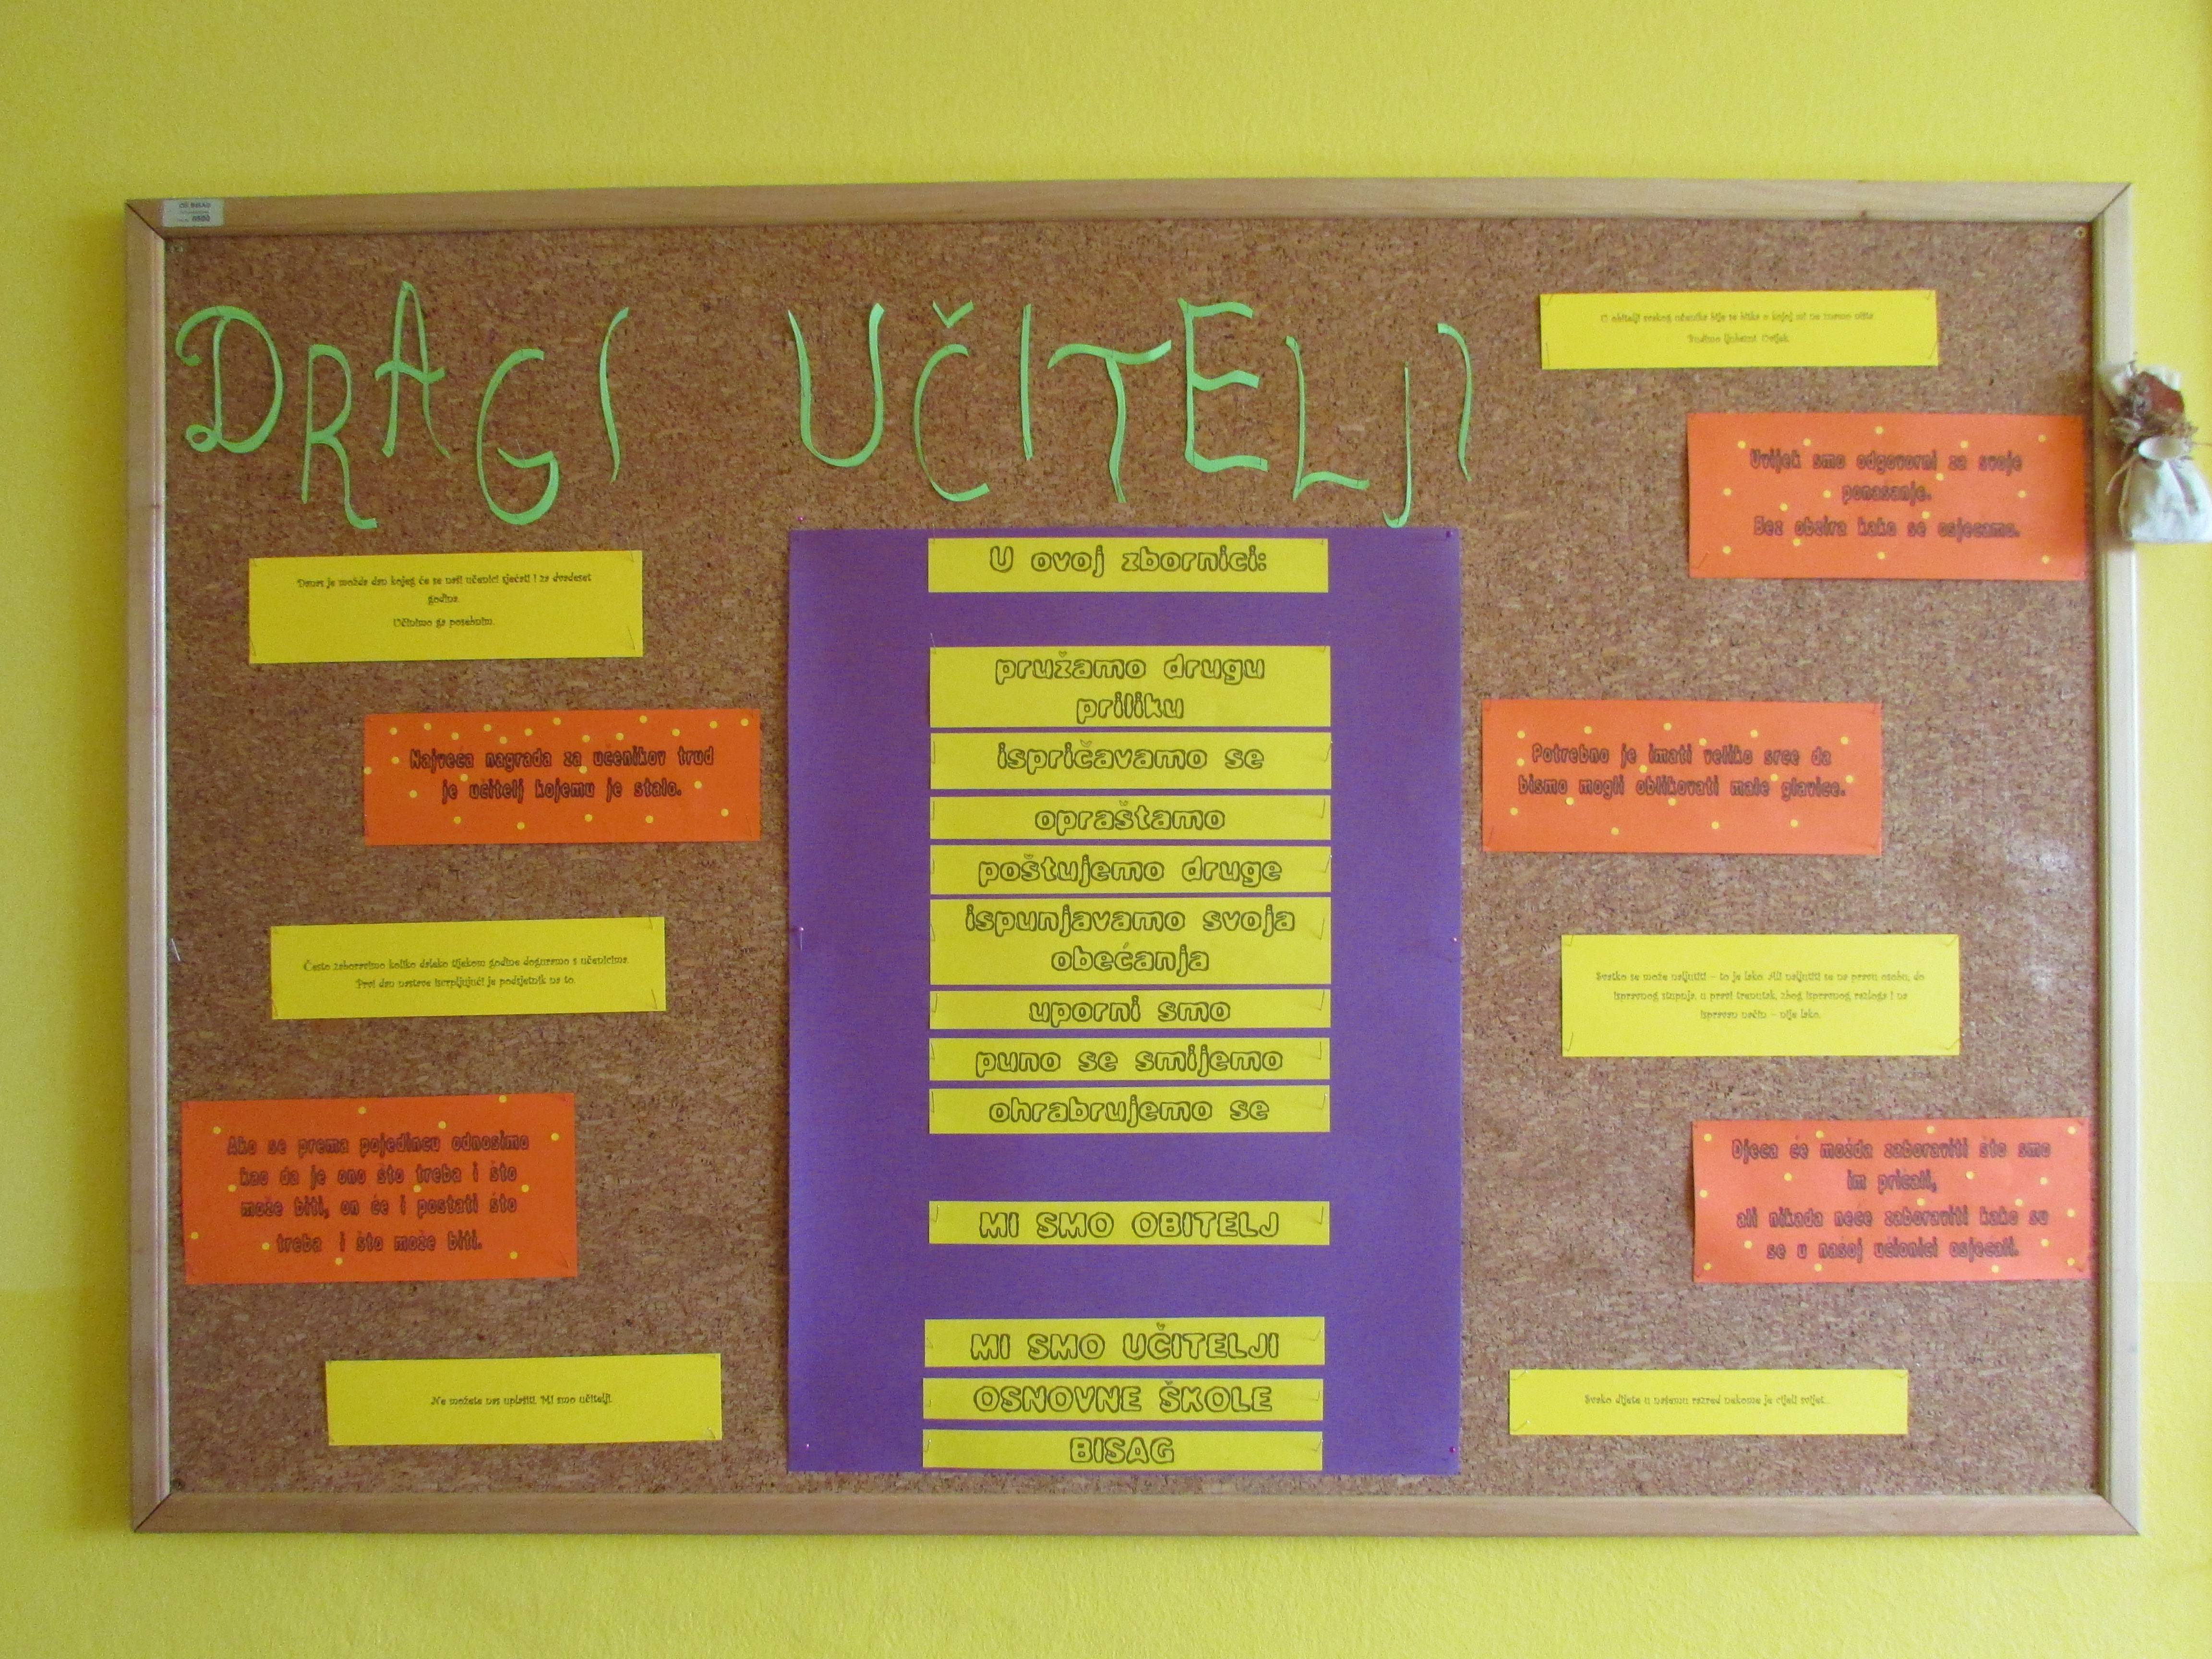 OŠ BISAG
DRAGI UČITELJI
Danas je možda dan kojeg će se naši učenici sjećati i za dvadeset
godina.
Učinimo ga posebnim.
Najveća nagrada za učenikov trud
je učitelj kojemu je stalo.
Često zaboravimo koliko daleko tijekom godine doguramo s učenicima.
Prvi dan nastave iscrpljujući je podsjetnik na to.
Ako se prema pojedincu odnosimo
kao da je ono što treba i što
može biti, on će i postati što
treba i što može biti.
Ne možete nas uplašiti. Mi smo učitelji.
U ovoj zbornici:
pružamo drugu
priliku
ispričavamo se
opraštamo
poštujemo druge
ispunjavamo svoja
obećanja
uporni smo
puno se smijemo
ohrabrujemo se
MI SMO OBITELJ
MI SMO UČITELJI
OSNOVNE ŠKOLE
BISAG
U obitelji svakog učenika bije se bitka o kojoj mi ne znamo ništa
Budimo ljubazni. Uvijek.
Uvijek smo odgovorni za svoje
ponašanje.
Bez obzira kako se osjećamo.
Potrebno je imati veliko srce da
bismo mogli oblikovati male glavice.
Svatko se može naljutiti – to je lako. Ali naljutiti se na pravu osobu, do
ispravnog stupnja, u pravi trenutak, zbog ispravnog razloga i na
ispravan način – nije lako.
Djeca će možda zaboraviti što smo
im pričali,
ali nikada neće zaboraviti kako su
se u našoj učionici osjećali.
Svako dijete u našemu razred nekome je cijeli svijet...